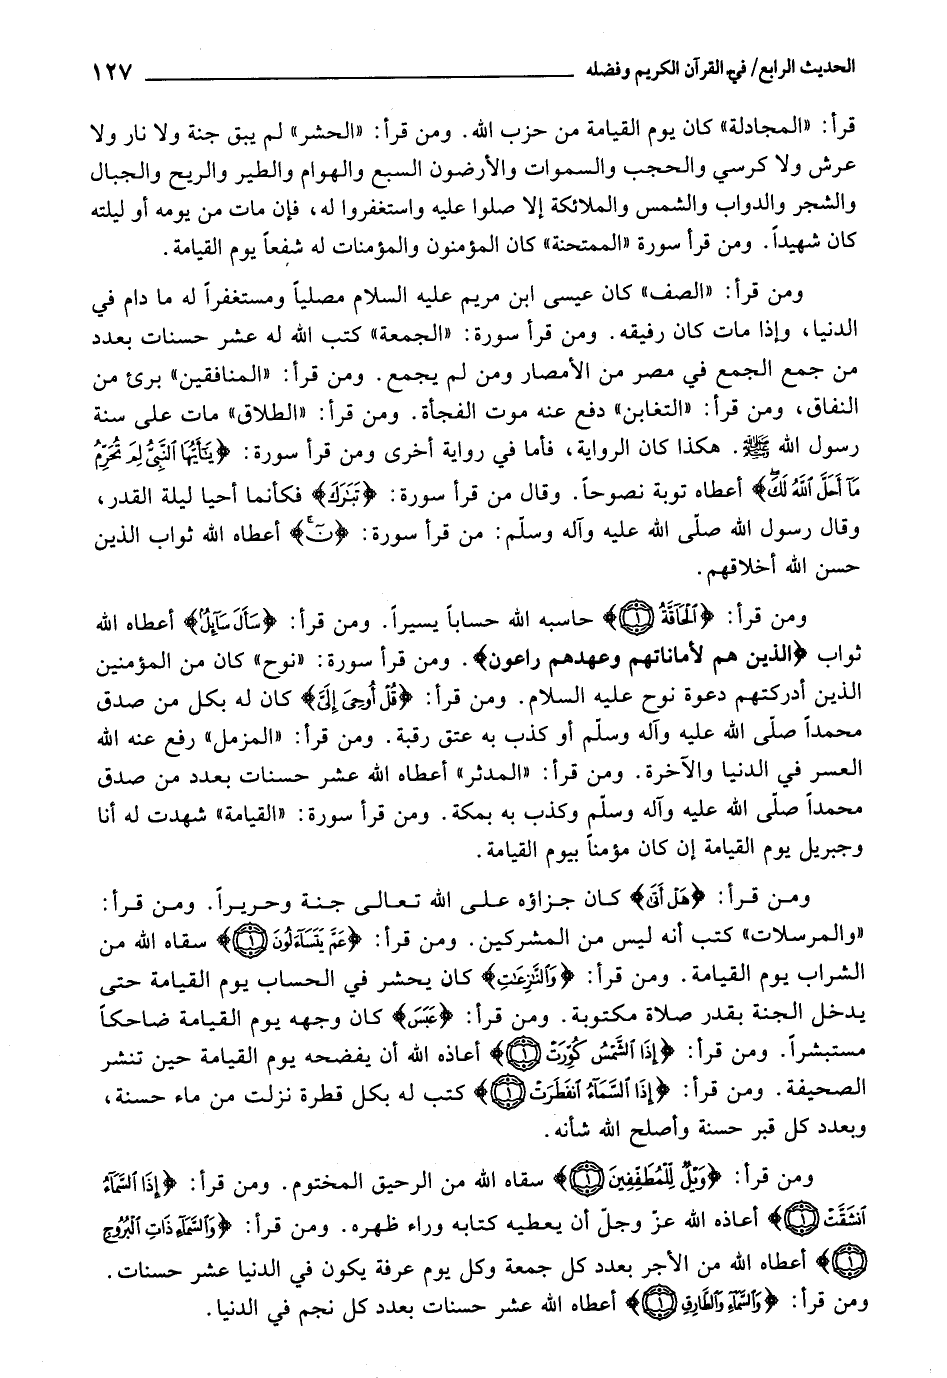 الحديث الرابع/ في القرآن الكريم وفضله ١٢٧
قرأ: «المجادلة» كان يوم القيامة من حزب الله. ومن قرأ: «الحشر» لم يبق جنة ولا نار ولا
عرش ولا كرسي والحجب والسموات والأرضون السبع والهوام والطير والريح والجبال
والشجر والدواب والشمس والملائكة إلا صلوا عليه واستغفروا له، فإن مات من يومه أو ليلته
كان شهيداً. ومن قرأ سورة «الممتحنة» كان المؤمنون والمؤمنات له شفعاً يوم القيامة.
ومن قرأ: «الصف» كان عيسى ابن مريم عليه السلام مصلياً ومستغفراً له ما دام في
الدنيا، وإذا مات كان رفيقه. ومن قرأ سورة: «الجمعة» كتب الله له عشر حسنات بعدد
من جمع الجمع في مصر من الأمصار ومن لم يجمع. ومن قرأ: «المنافقين» برئ من
النفاق، ومن قرأ: «التغابن» دفع عنه موت الفجأة. ومن قرأ: «الطلاق» مات على سنة
رسول الله ﷺ. هكذا كان الرواية، فأما في رواية أخرى ومن قرأ سورة: ﴿يَٰٓأَيُّهَا ٱلنَّبِيُّ لِمَ تُحَرِّمُ
مَآ أَحَلَّ ٱللَّهُ لَكَۖ﴾ أعطاه توبة نصوحاً. وقال من قرأ سورة: ﴿تَبَٰرَكَ﴾ فكأنما أحيا ليلة القدر،
وقال رسول الله صلّى الله عليه وآله وسلّم: من قرأ سورة: ﴿نٓۚ﴾ أعطاه الله ثواب الذين
حسن الله أخلاقهم.
ومن قرأ: ﴿ٱلْحَآقَّةُ ۝١﴾ حاسبه الله حساباً يسيراً. ومن قرأ: ﴿سَأَلَ سَآئِلٌۢ﴾ أعطاه الله
ثواب ﴿الذين هم لأماناتهم وعهدهم راعون﴾. ومن قرأ سورة: «نوح» كان من المؤمنين
الذين أدركتهم دعوة نوح عليه السلام. ومن قرأ: ﴿قُلْ أُوحِيَ إِلَيَّ﴾ كان له بكل من صدق
محمداً صلّى الله عليه وآله وسلّم أو كذب به عتق رقبة. ومن قرأ: «المزمل» رفع عنه الله
العسر في الدنيا والآخرة. ومن قرأ: «المدثر» أعطاه الله عشر حسنات بعدد من صدق
محمداً صلّى الله عليه وآله وسلّم وكذب به بمكة. ومن قرأ سورة: «القيامة» شهدت له أنا
وجبريل يوم القيامة إن كان مؤمناً بيوم القيامة.
ومن قرأ: ﴿هَلْ أَتَىٰ﴾ كان جزاؤه على الله تعالى جنة وحريراً. ومن قرأ:
«والمرسلات» كتب أنه ليس من المشركين. ومن قرأ: ﴿عَمَّ يَتَسَآءَلُونَ ۝١﴾ سقاه الله من
الشراب يوم القيامة. ومن قرأ: ﴿وَٱلنَّٰزِعَٰتِ﴾ كان يحشر في الحساب يوم القيامة حتى
يدخل الجنة بقدر صلاة مكتوبة. ومن قرأ: ﴿عَبَسَ﴾ كان وجهه يوم القيامة ضاحكاً
مستبشراً. ومن قرأ: ﴿إِذَا ٱلشَّمْسُ كُوِّرَتْ ۝١﴾ أعاذه الله أن يفضحه يوم القيامة حين تنشر
الصحيفة. ومن قرأ: ﴿إِذَا ٱلسَّمَآءُ ٱنفَطَرَتْ ۝١﴾ كتب له بكل قطرة نزلت من ماء حسنة،
وبعدد كل قبر حسنة وأصلح الله شأنه.
ومن قرأ: ﴿وَيْلٌ لِّلْمُطَفِّفِينَ ۝١﴾ سقاه الله من الرحيق المختوم. ومن قرأ: ﴿إِذَا ٱلسَّمَآءُ
ٱنشَقَّتْ ۝١﴾ أعاذه الله عزّ وجلّ أن يعطيه كتابه وراء ظهره. ومن قرأ: ﴿وَٱلسَّمَآءِ ذَاتِ ٱلْبُرُوجِ
۝١﴾ أعطاه الله من الأجر بعدد كل جمعة وكل يوم عرفة يكون في الدنيا عشر حسنات.
ومن قرأ: ﴿وَٱلسَّمَآءِ وَٱلطَّارِقِ ۝١﴾ أعطاه الله عشر حسنات بعدد كل نجم في الدنيا.